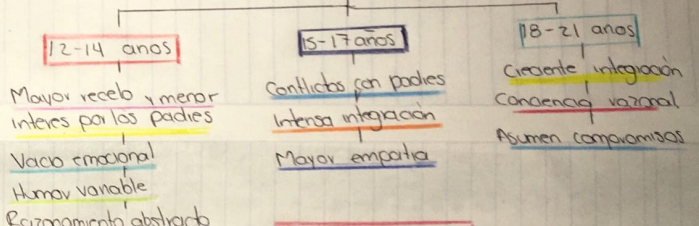 12-14 años
Mayor recelo y menor
interes por los padres
Vacio emocional
Humor variable
Razonamiento abstracto
15-17 años
Conflictos con padres
Intensa integración
Mayor empatia
18-21 anos
Creciente integración
Conciencia razonal
Asumen compromisos